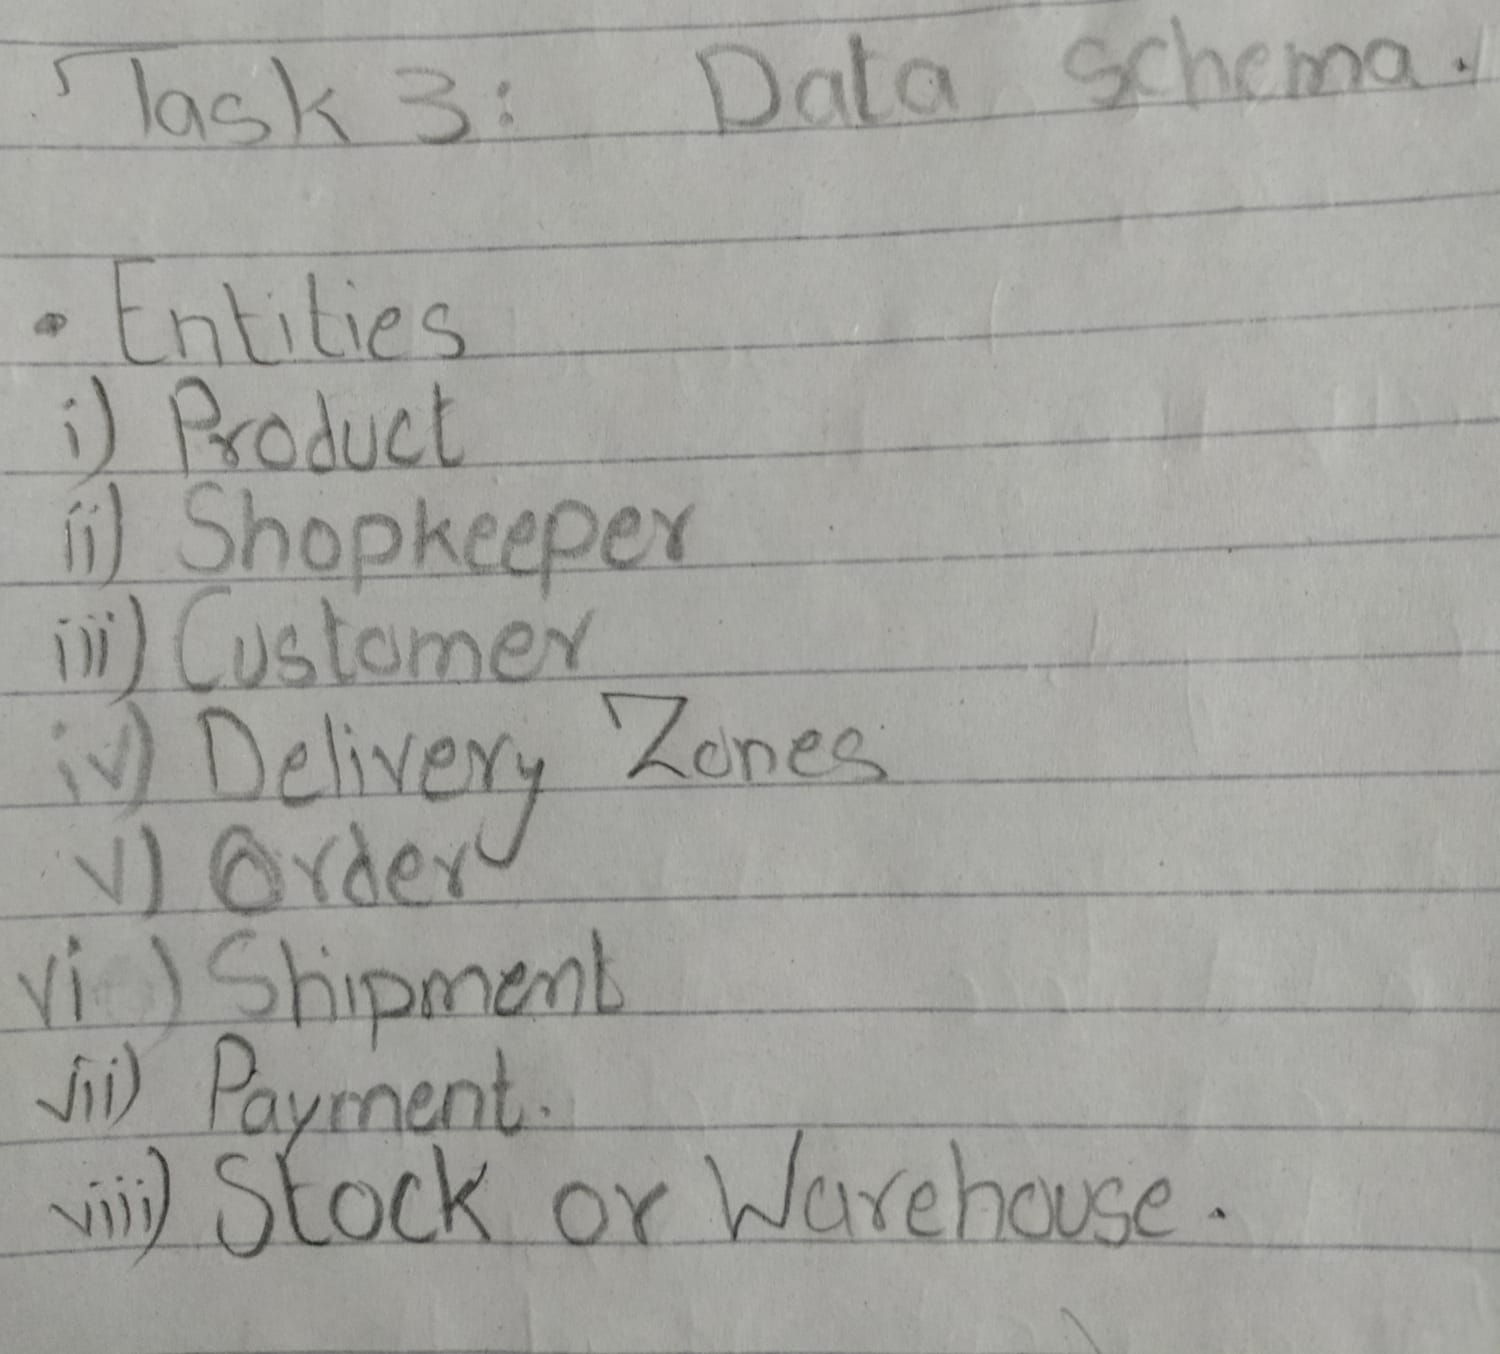 Task 3: Data schema.
• Entities
i) Product
ii) Shopkeeper
iii) Customer
iv) Delivery Zones
v) Order
vi ) Shipment
vii) Payment.
viii) Stock or Warehouse.